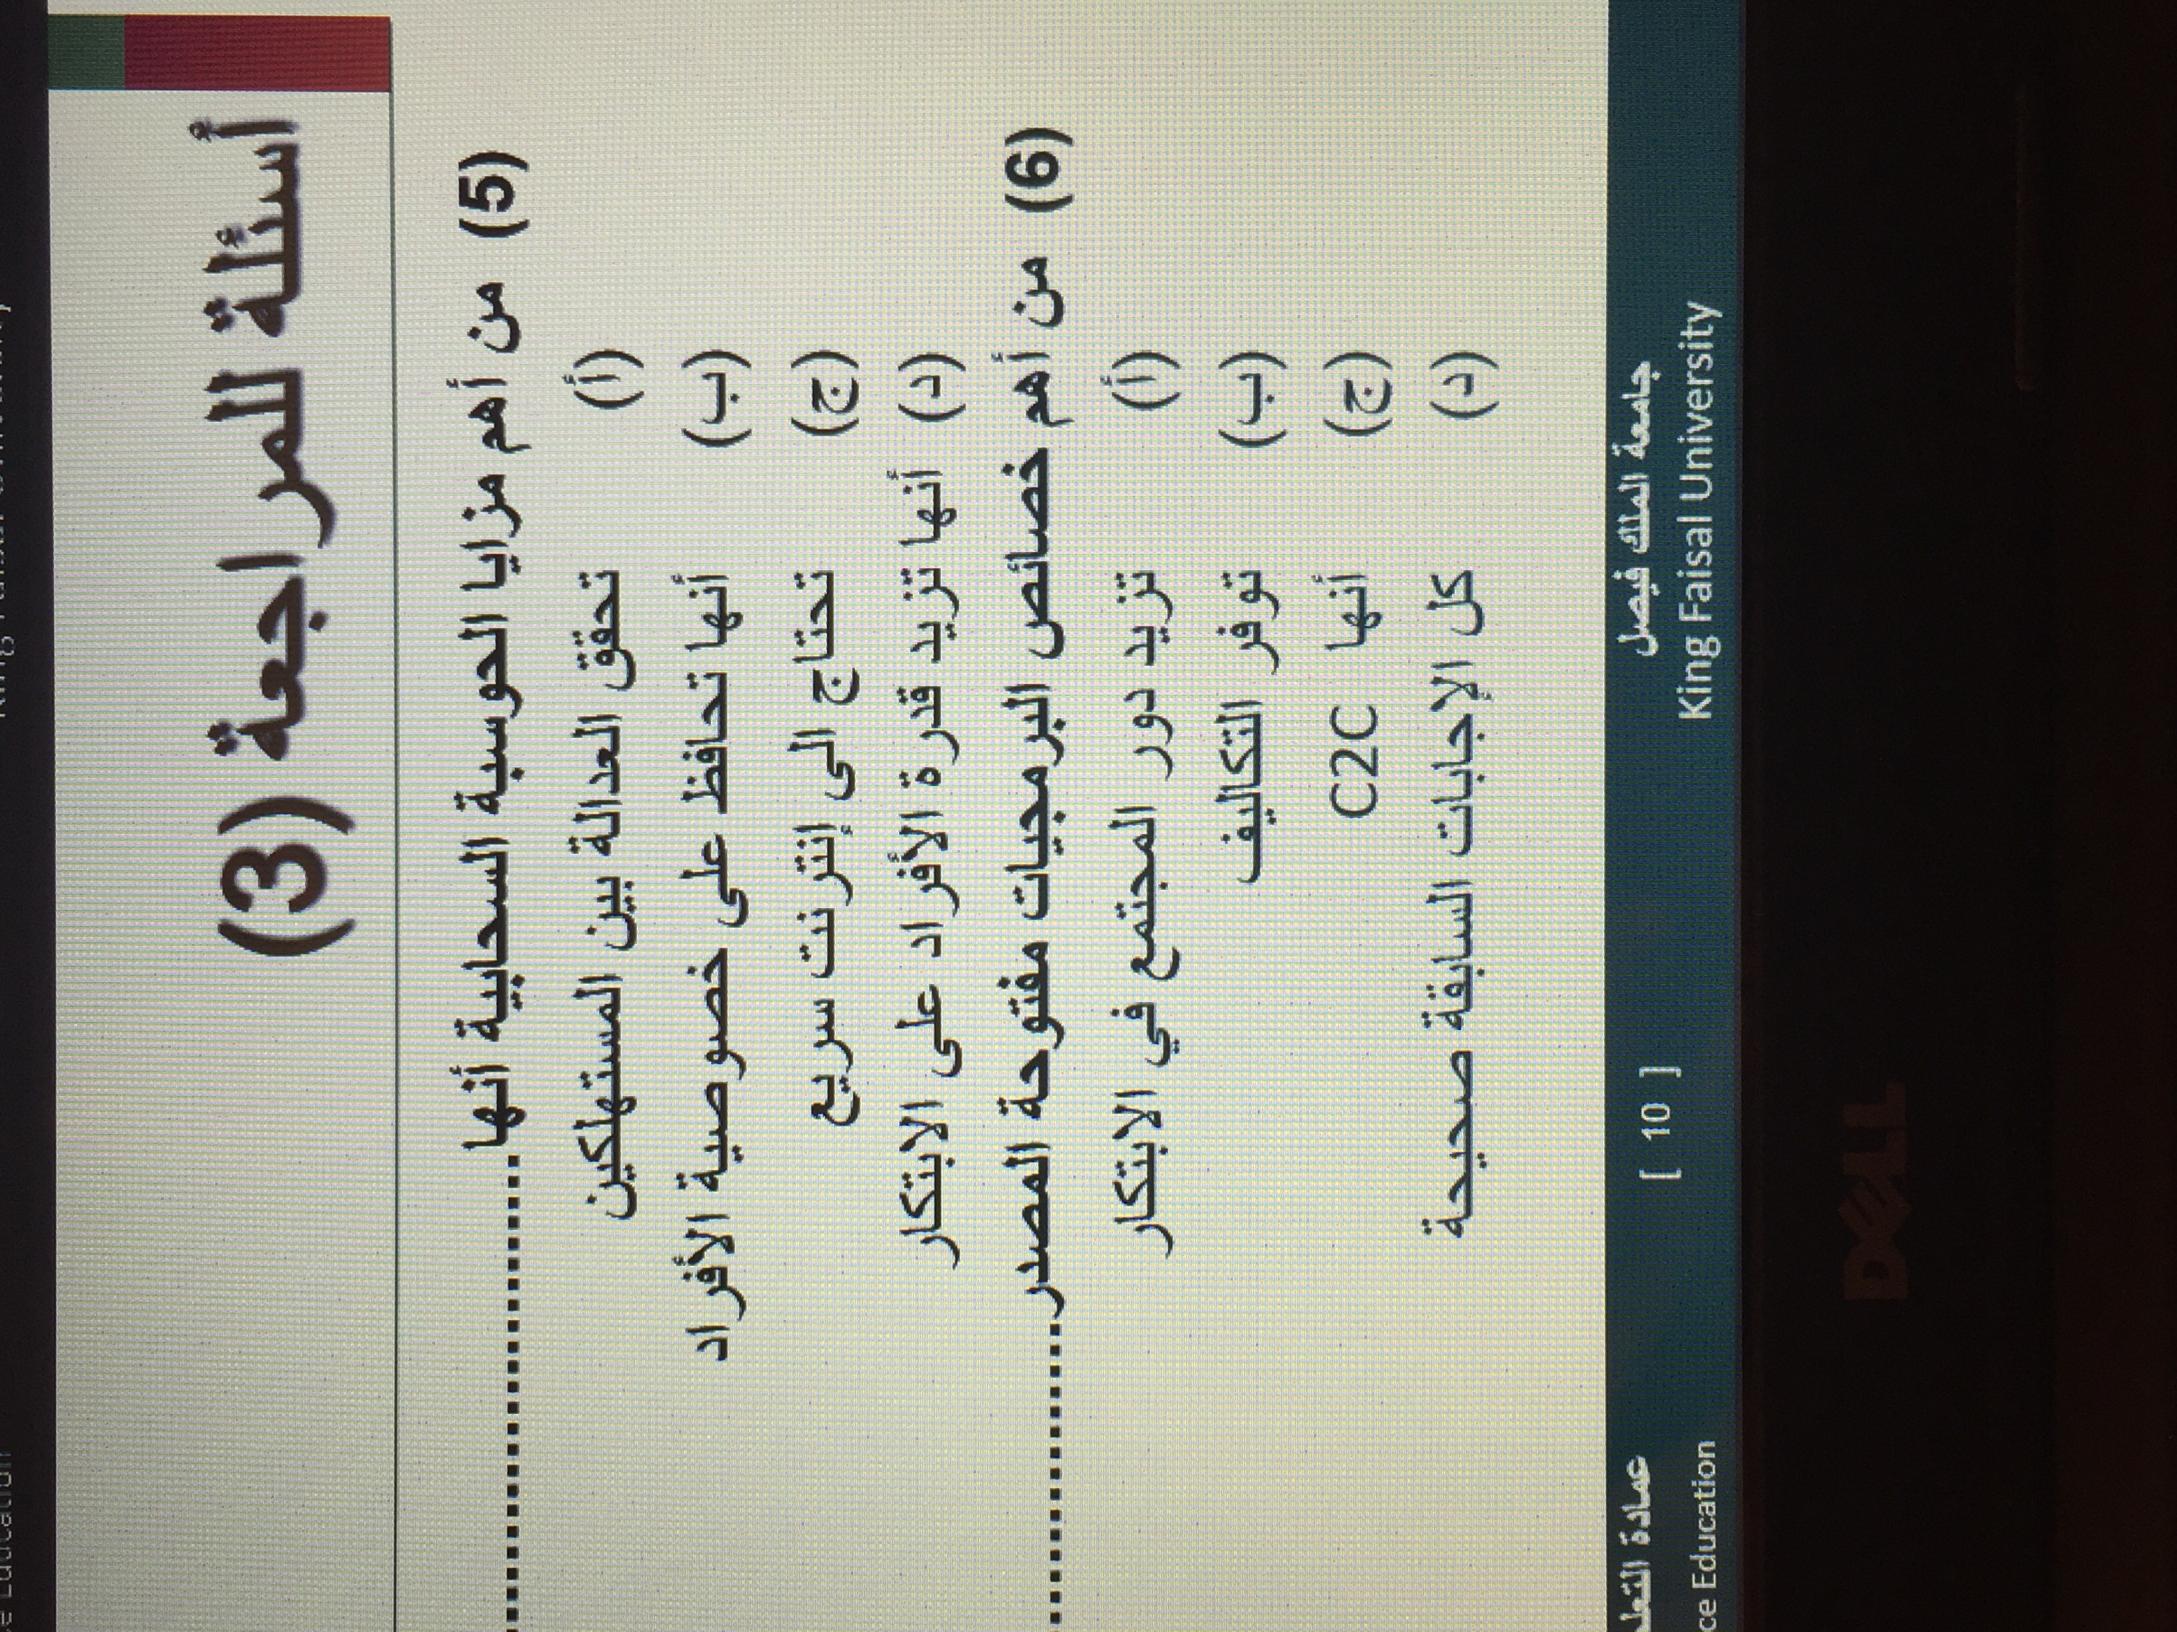 أسئلة المراجعة (3)
(5) من أهم مزايا الحوسبة السحابية أنها..............................
(أ) تحقق العدالة بين المستهلكين
(ب) أنها تحافظ على خصوصية الأفراد
(ج) تحتاج الى إنترنت سريع
(د) أنها تزيد قدرة الأفراد على الابتكار
(6) من أهم خصائص البرمجيات مفتوحة المصدر....................
(أ) تزيد دور المجتمع في الابتكار
(ب) توفر التكاليف
(ج) أنها C2C
(د) كل الإجابات السابقة صحيحة
جامعة الملك فيصل
King Faisal University
[ 10 ]
عمادة
Education
DELL